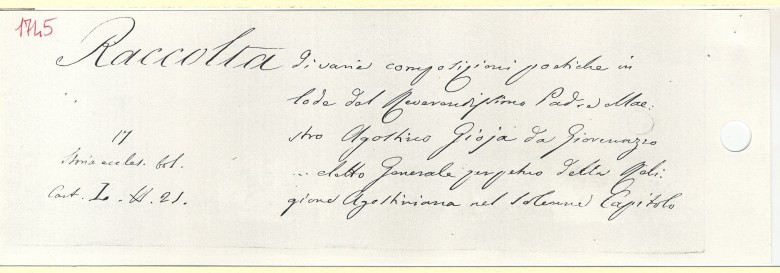 1745
Raccolta di varie composizioni poetiche in
lode del Reverendissimo Padre Mae:
stro Agostino Gioja da Giovenazzo
... eletto Generale perpetuo della Reli
gione Agostiniana nel solenne Capitolo
17
Storia eccles. bol.
Cart. I. 21.